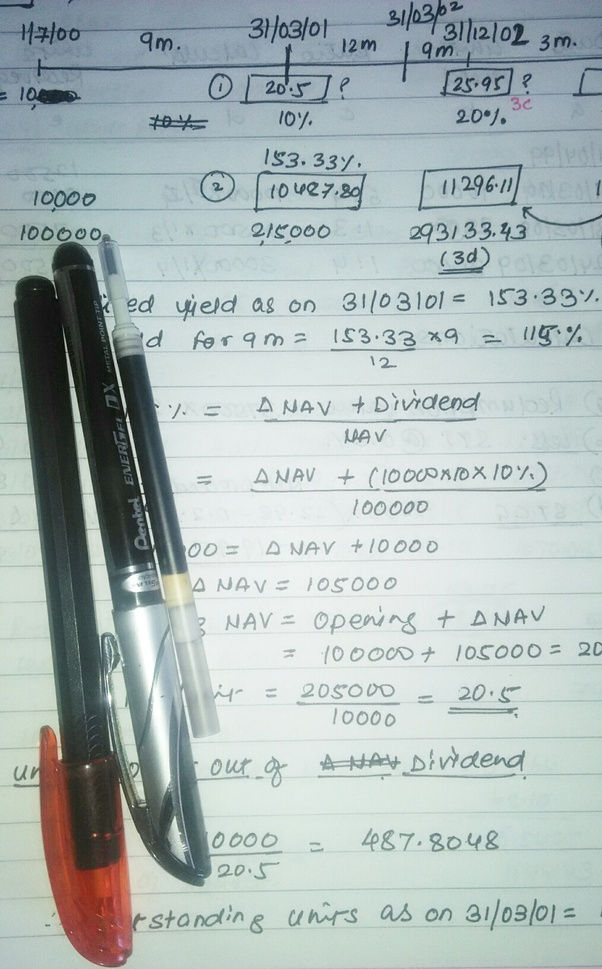 1/7/00 9m. 31/03/01 12m 31/03/02 9m 31/12/02 3m.
① 20.5 ? 25.95 ?
3c
10% 10% 20%
153.33%.
10,000 ② 10487.80 11296.11
100000 2,15,000 293133.43
(3d)
yield as on 31/03/01 = 153.33%.
for 9m = 153.33 × 9 = 115.%
12
% = Δ NAV + Dividend
NAV
= Δ NAV + (10000×10×10%)
100000
= Δ NAV + 10000
Δ NAV = 105000
NAV = Opening + Δ NAV
= 100000 + 105000 = 20
= 205000 = 20.5
10000
out of Δ NAV Dividend
0000 = 487.8048
20.5
standing units as on 31/03/01 =
Pentel ENERGEL DX METAL POINT TIP